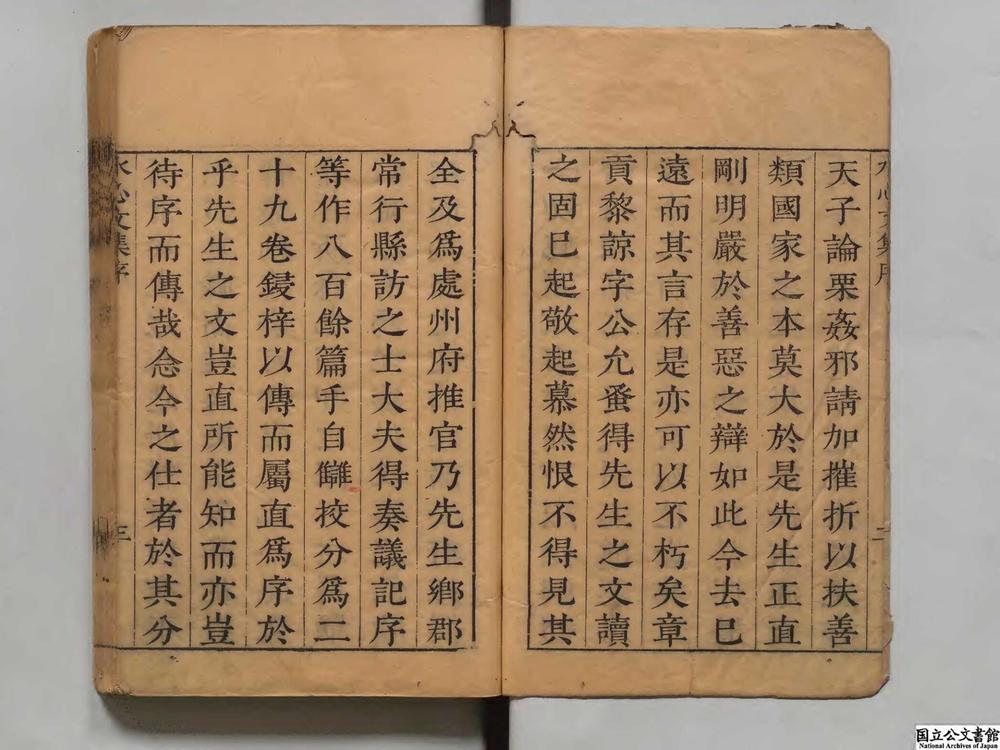 天子論栗姦邪請加摧折以扶善
類國家之本莫大於是先生正直
剛明嚴於善惡之辯如此今去已
遠而其言存是亦可以不朽矣章
貢黎諒字公允蚤得先生之文讀
之固已起敬起慕然恨不得見其
全及爲處州府推官乃先生鄉郡
常行縣訪之士大夫得奏議記序
等作八百餘篇手自讎挍分爲二
十九卷鋟梓以傳而屬直爲序於
乎先生之文豈直所能知而亦豈
待序而傳哉念今之仕者於其分
水心文集序
二
水心文集序
三
国立公文書館
National Archives of Japan